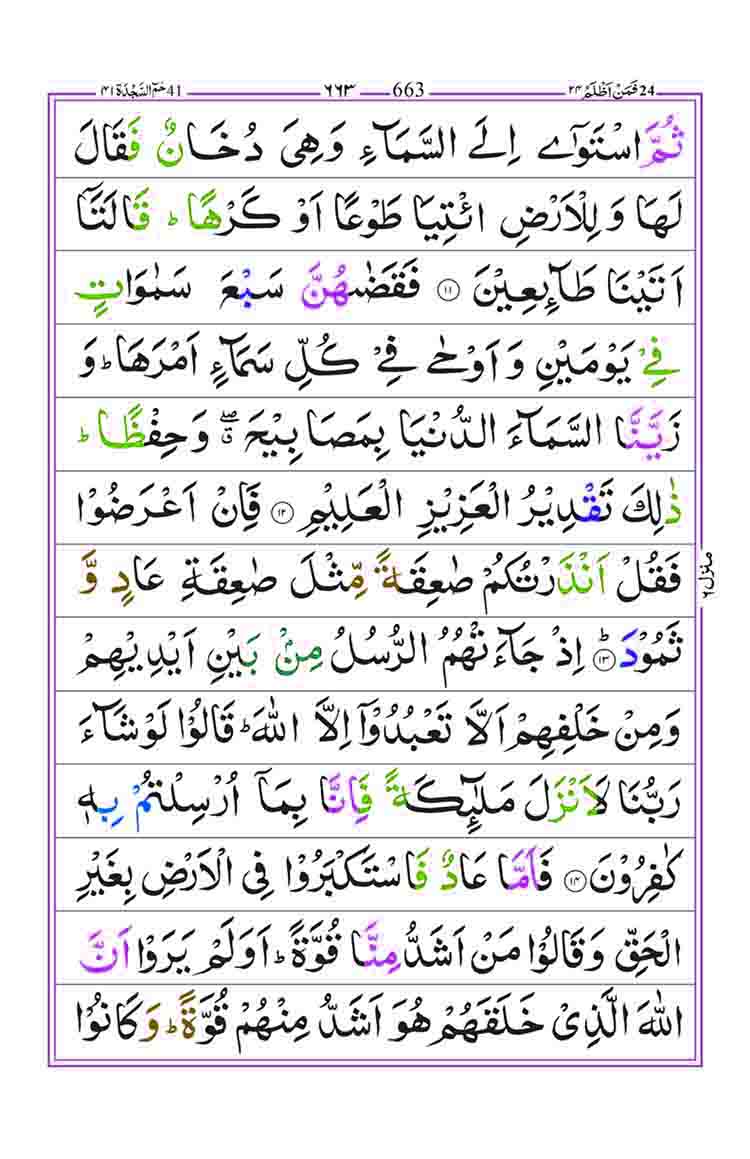 24 فَمَنْ اَظْلَمُ ٢٤ 663 ٦٦٣ 41 حٰمٓ السَّجْدَة ٤١
ثُمَّ اسْتَوٰٓى اِلَى السَّمَآءِ وَهِىَ دُخَانٌ فَقَالَ
لَهَا وَلِلْاَرْضِ ائْتِيَا طَوْعًا اَوْ كَرْهًا ؕ قَالَتَآ
اَتَيْنَا طَآئِعِيْنَ ۝۱۱ فَقَضٰىهُنَّ سَبْعَ سَمٰوَاتٍ
فِىْ يَوْمَيْنِ وَاَوْحٰى فِىْ كُلِّ سَمَآءٍ اَمْرَهَا ؕ وَ
زَيَّنَّا السَّمَآءَ الدُّنْيَا بِمَصَابِيْحَ ۖۗ وَحِفْظًا ؕ
ذٰلِكَ تَقْدِيْرُ الْعَزِيْزِ الْعَلِيْمِ ۝۱۲ فَاِنْ اَعْرَضُوْا
فَقُلْ اَنْذَرْتُكُمْ صٰعِقَةً مِّثْلَ صٰعِقَةِ عَادٍ وَّ
ثَمُوْدَ ؕ ۝۱۳ اِذْ جَآءَتْهُمُ الرُّسُلُ مِنْۢ بَيْنِ اَيْدِيْهِمْ
وَمِنْ خَلْفِهِمْ اَلَّا تَعْبُدُوْٓا اِلَّا اللّٰهَ ؕ قَالُوْا لَوْ شَآءَ
رَبُّنَا لَاَنْزَلَ مَلٰٓئِكَةً فَاِنَّا بِمَآ اُرْسِلْتُمْ بِهٖ
كٰفِرُوْنَ ۝۱۴ فَاَمَّا عَادٌ فَاسْتَكْبَرُوْا فِى الْاَرْضِ بِغَيْرِ
الْحَقِّ وَقَالُوْا مَنْ اَشَدُّ مِنَّا قُوَّةً ؕ اَوَلَمْ يَرَوْا اَنَّ
اللّٰهَ الَّذِىْ خَلَقَهُمْ هُوَ اَشَدُّ مِنْهُمْ قُوَّةً ؕ وَكَانُوْا
منزل ٦